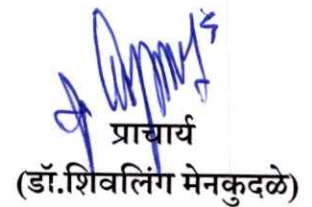 प्राचार्य
(डॉ.शिवलिंग मेनकुदळे)